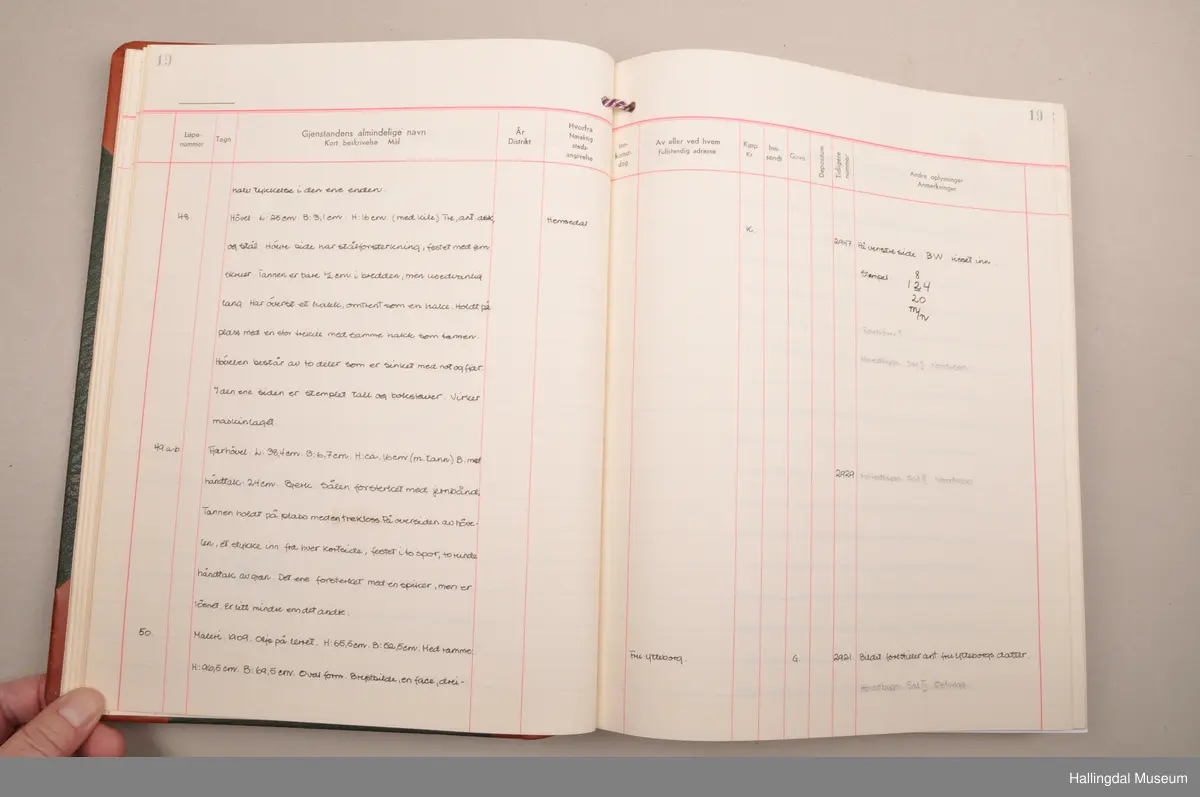 19
Løpe-
nummer
Tegn
Gjenstandens almindelige navn
Kort beskrivelse Mål
År
Distrikt
Hvorfra
Nøiaktig
steds-
angivelse
halv tykkelse i den ene enden.
48. Hövel. L: 26cm. B: 3,1cm. H: 16cm. (med kile) Tre, ant. ask, Hemsedal
og stål. Höire side har stålforsterkning, festet med fem
skruer. Tannen er bare ½ cm i bredden, men usedvanlig
lang. Har överst et hakk, omtrent som en hake. Holdt på
plass med en stor trekile med samme hakk som tannen.
Hövelen består av to deler som er sinket med not og fjær.
I den ene siden er stemplet tall og bokstaver. Virker
maskinlaget.
49 a-b. Fjærhövel. L: 38,4cm. B: 6,7cm. H: ca. 16cm (m. tann) B. med
håndtak: 24cm. Bjerk. Sålen forsterket med jernbånd.
Tannen holdt på plass med en trekloss. På oversiden av höve-
len, et stykke inn fra hver kortside, festet i to spor, to runde
håndtak av gran. Det ene forsterket med en spiker, men er
lösnet. Er litt mindre enn det andre.
50. Maleri 1909. Olje på lerret. H: 65,5cm. B: 52,5cm. Med ramme:
H: 90,5cm. B: 69,5cm. Oval form. Brystbilde, en face, drei-
19
Inn-
komst-
dag
Av eller ved hvem
Fullstendig adresse
Kjøp
Kr.
Inn-
sendt
Gave
Depositum
Tidligere
nummer
Andre oplysninger
Anmerkninger
K. 2947 På venstre side: BW risset inn.
Stempel: 8
124
20
Hovedbygn. Sal II
2929 Hovedbygn. Sal II
Fru Ytteborg. G. 2921 Bildet forestiller ant. fru Ytteborgs datter.
Hovedbygn. Sal II
Hallingdal Museum